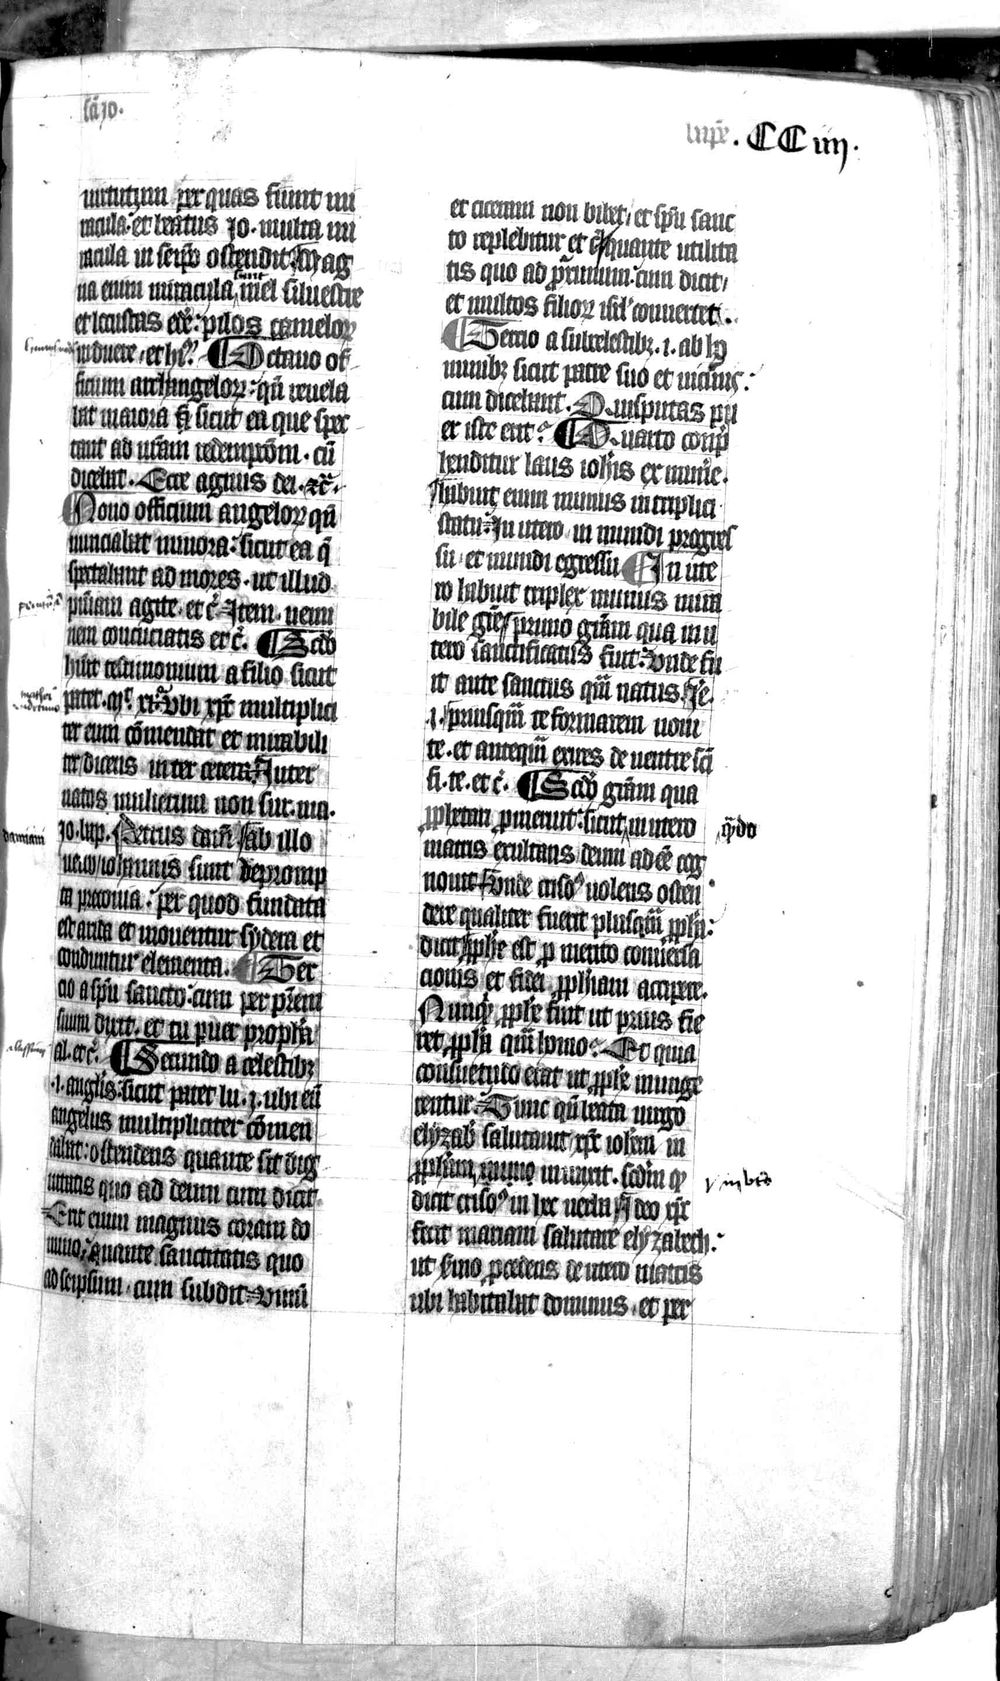 sc̄i io.
. CC iiij.
uirtutum per quas fiunt mi
racula. et beatus Jo. multa mi
racula in seip̄o ostendit. Mag
na enim miracula sunt mel siluestre
et locustas edere: pilos cameloꝝ
induere, et hi⁹. Octauo of
ficium archangeloꝝ: qn̄ reuela
bat maiora sicut ea que spec
tant ad nr̄am redempc̄om. cū
dicebat. Ecce agnus dei. ⁊c̄.
Nono officium angeloꝝ qn̄
nunciabat minora: sicut ea q̄
spectabant ad mores. ut illud
pn̄iam agite. et c̄. Item. nemi
nem concuciatis et c̄. Scd̄o
habuit testimonium a filio sicut
patet. mt̄. xi. Vbi xp̄c multiplici
ter eum cōmendat et mirabili
ter dicens inter cetera. Inter
natos mulierum non sur. ma.
Jo. bap. Petrus dam̄. sub illo
uerbo iohannis sunt depromp
ta preconia: per quod fundata
est arida et mouentur sydera et
conduntur elementa. Ter
cio a sp̄u sancto. cum per pr̄em
suum dixit. et tu puer prophā
al. et c̄. Secundo a celestibꝫ
.i. angl̄is. sicut patet lu. j. ubi eū
angelus multipliciter cōmen
dabat: ostendens quante sit dig
nitatis quo ad deum cum dicit
Erit enim magnus coram do
mino. quante sanctitatis quo
ad seipsum. cum subdit Vinū
damiani
et ciceram non bibet, et sp̄u sanc
to replebitur et c̄. quante utilita
tis quo ad proximum. cum dicit,
et multos filioꝝ isrl̄ conuertet.
Tercio a subcelestibꝫ .i. ab ho
minibꝫ sicut patre suo et uicinis:
cum dicebant. Quis putas pu
er iste erit? Quarto comp̄
henditur laus ioh̄is ex mun̄e.
Habuit enim munus in triplici
statu. In utero in mundi progres
su. et mundi egressu In ute
ro habuit triplex munus mira
bile gr̄e. primo gr̄am qua in u
tero sanctificatus fuit. Vnde fu
it ante sanctus qua̅ natus. Je.
.i. priusqua̅ te formarem noui
te. et anteqm̄ exires de uentre sc̄i
fi. te. et c̄. Scd̄o gr̄am qua
ꝓphetau ꝓmeruit: sicut in utero
matris exultans deum adesse cog
nouit. Vnde crisos uolens osten
dere qualiter fuerit plusqua̅ ꝓph̄a:
dicit. ꝓphe est ꝓ merito conuersa
cionis et fidei ꝓphiam accipere.
Nunqꝫ ꝓphe fuit ut prius fie
ret ꝓph̄a qua̅ homo? Et quia
consuetudo erat ut ꝓphe munge
rentur. Tunc qn̄ beata uirgo
elyzab̄ salutauit xp̄c ioh̄em in
inunxit. scd̄m qꝫ
dicit crisos in hec uerba Ideo xp̄c
fecit mariam salutare elyzabeth:
ut ꝓcedens de utero matris
ubi habitabat dominus. et per
qn̄do